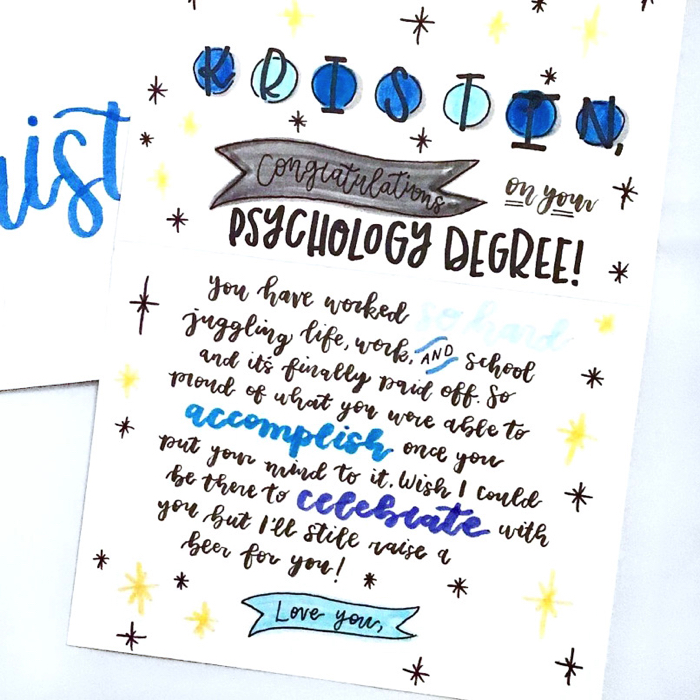 ist
KRISTIN,
Congratulations
on your
PSYCHOLOGY DEGREE!
you have worked so hard
juggling life, work, AND school
and it's finally paid off. So
proud of what you were able to
accomplish once you
put your mind to it. Wish I could
be there to celebrate with
you but I'll still raise a
beer for you!
Love you,